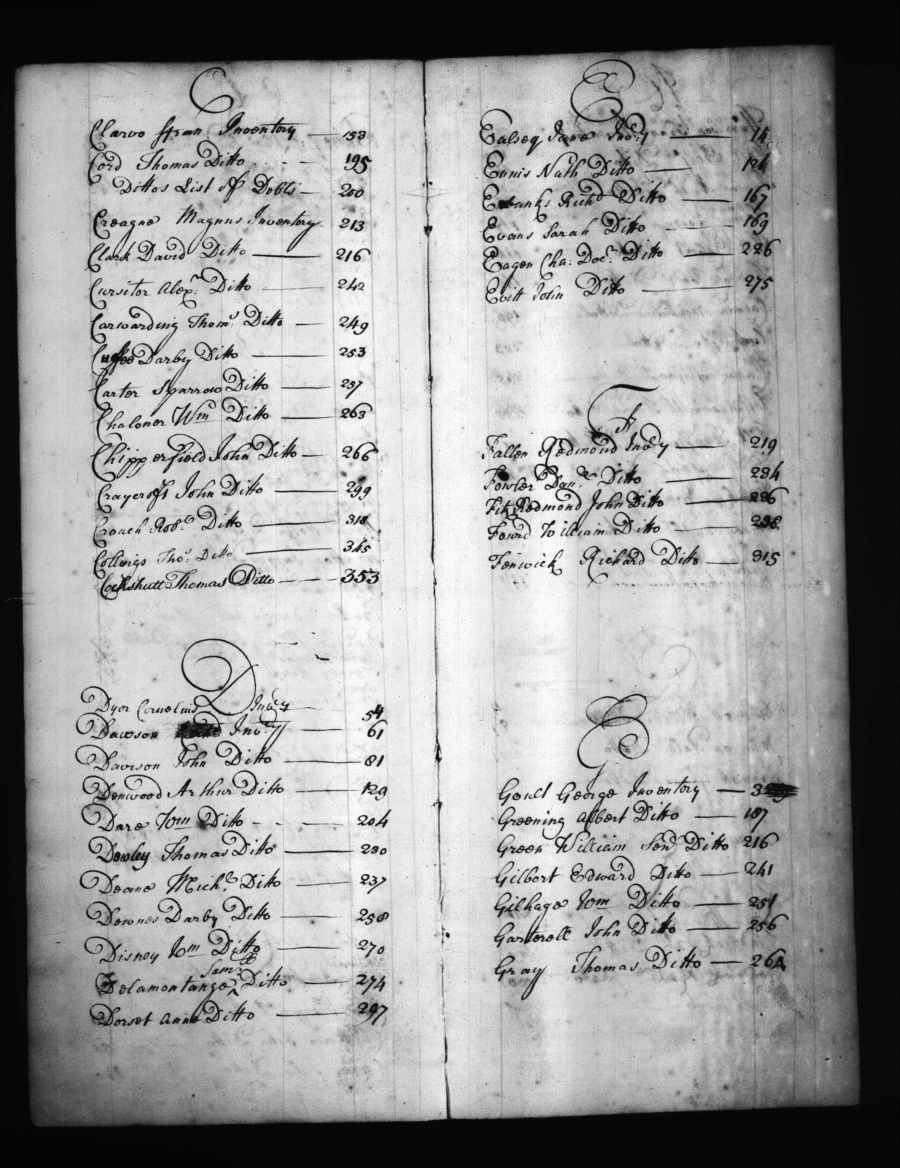 C
Clarvo ffran Inventory 158
Cord Thomas Ditto 195
Dittos List of Debts 200
Creagne Magnus Inventory 213
Clark David Ditto 216
Cursitor Alexr. Ditto 242
Carwarding Thoms. Ditto 249
Darby Ditto 253
Carter Sparrow Ditto
Chaloner Wm Ditto 263
Chipperfield John Ditto 266
Craycroft John Ditto 299
Crouch Robt. Ditto
Collings Thos. Ditto 345
Cockshutt Thomas Ditto 353
D
Dyor Cornelius Invty 54
Dawson Invty 61
Davison John Ditto 81
Denwood Arthur Ditto 129
Dare Wm Ditto 204
Dewley Thomas Ditto 230
Deane Mich. Ditto 237
Downes Darby Ditto 258
Disney Wm Ditto 270
Saml
Delamontange ^ Ditto 274
Dorset Anne Ditto 297
E
Ealsey Jane Invy 14
Ennis Nath Ditto
Ewbanks Richd Ditto 167
Evans Sarah Ditto 169
Eagen Cha: Doct. Ditto 226
Evitt John Ditto 275
F
Fallen Redmond Invty 219
Fowler Danl. Ditto 234
Fitz Redmond John Ditto 236
Foard William Ditto 238
Fenwick Richard Ditto 315
G
Goult George Inventory
Greening Albert Ditto 187
Green William Senr Ditto 216
Gilbert Edward Ditto 241
Gilhage Wm Ditto 251
Ganterell John Ditto 256
Gray Thomas Ditto 264